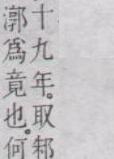 十九年。取邾
漷爲竟也。何